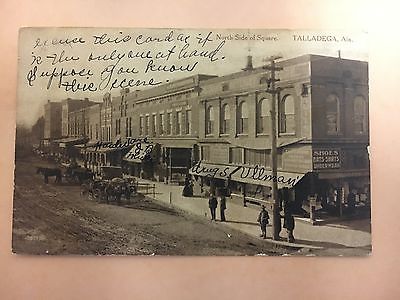 excuse this card as it
is the only one at hand.
Suppose you know
this scene
North Side of Square.
TALLADEGA, Ala.
Drugs Ullman's
SHOES
HATS-SHIRTS
UNDERWEAR